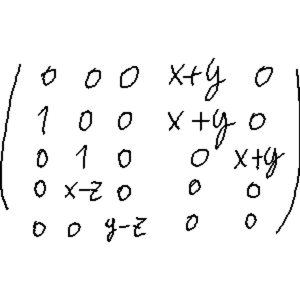 0 0 0 x+y 0
1 0 0 x+y 0
0 1 0 0 x+y
0 x-z 0 0 0
0 0 y-z 0 0